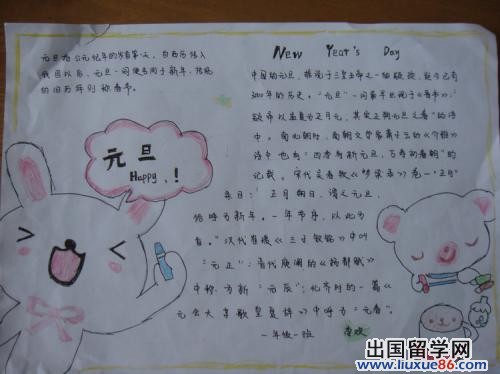 元旦指公元纪年的岁首第一天，自西历传入
我国以后，元旦一词便专用于新年，传统
的旧历年则称春节。
New Year's Day
中国的元旦，据说于三皇五帝之一的颛顼，距今已有
3000年的历史。"元旦"一词最早出现于《晋书》：
颛帝以孟夏为正月元，其实正朔元旦之春"的诗
中。南北朝时，南朝文学家萧子云的《介雅》
诗中也有"四季新元旦，万寿初春朝"的
记载。宋代吴自牧《梦粱录》卷一"正月"
条目："正月朔日，谓之元旦，
俗呼为新年。一年节序，以此为
首。"汉代崔瑗《三子钗铭》中叫
"元正"；晋代庾阐的《扬都赋》
中称为新"元辰"；北齐时的一篇《
元会大享歌皇夏辞》中呼为"元春"。
一年级一班
元旦
Happy !
出国留学网
www.liuxue86.com